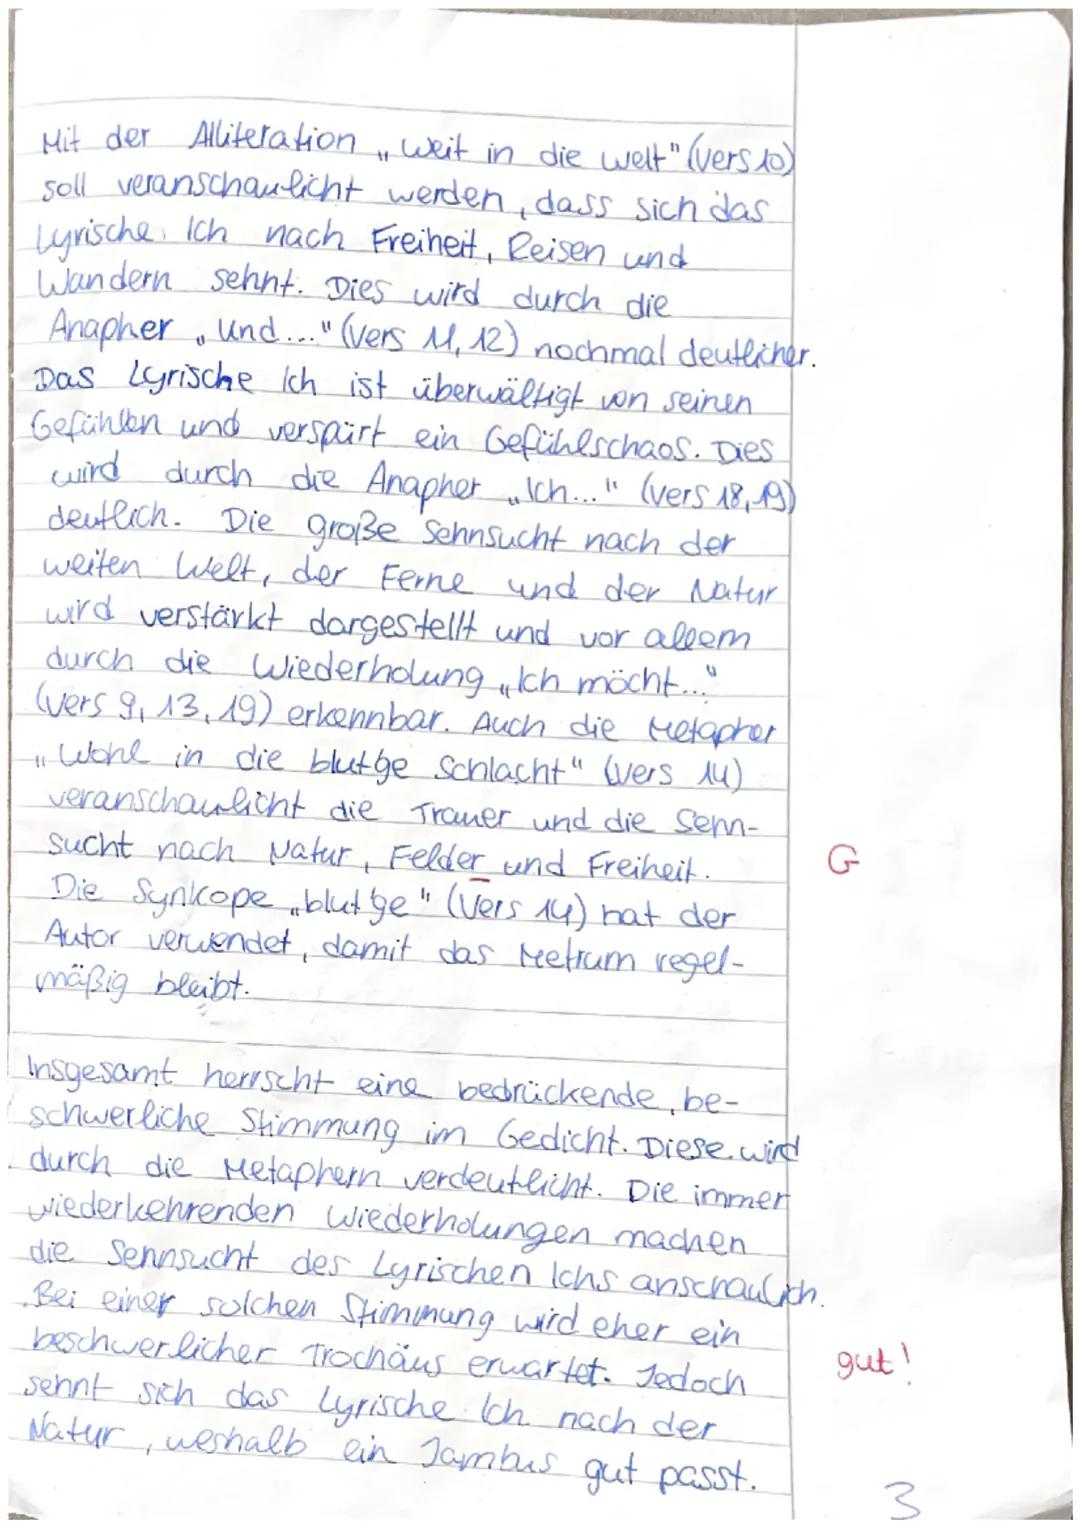 Mit der Alliteration „weit in die Welt" (Vers 10)
soll veranschaulicht werden, dass sich das
Lyrische Ich nach Freiheit, Reisen und
Wandern sehnt. Dies wird durch die
Anapher „Und..." (Vers 11, 12) nochmal deutlicher.
Das Lyrische Ich ist überwältigt von seinen
Gefühlen und verspürt ein Gefühlschaos. Dies
wird durch die Anapher „Ich..." (Vers 18, 19)
deutlich. Die große Sehnsucht nach der
weiten Welt, der Ferne und der Natur
wird verstärkt dargestellt und vor allem
durch die Wiederholung „Ich möcht..."
(Vers 9, 13, 19) erkennbar. Auch die Metapher
„Wohl in die blut'ge Schlacht" (Vers 14)
veranschaulicht die Trauer und die Sehn-
sucht nach Natur, Felder und Freiheit. G
Die Synkope „blut'ge" (Vers 14) hat der
Autor verwendet, damit das Metrum regel-
mäßig bleibt.
Insgesamt herrscht eine bedrückende, be-
schwerliche Stimmung im Gedicht. Diese wird
durch die Metaphern verdeutlicht. Die immer
wiederkehrenden Wiederholungen machen
die Sehnsucht des Lyrischen Ichs anschaulich.
Bei einer solchen Stimmung wird eher ein
beschwerlicher Trochäus erwartet. Jedoch gut!
sehnt sich das Lyrische Ich nach der
Natur, weshalb ein Jambus gut passt.
3